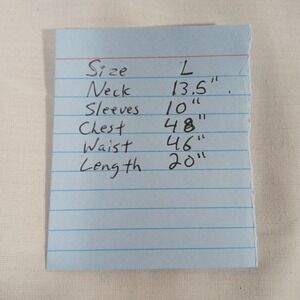 Size L
Neck 13.5".
Sleeves 10"
Chest 48"
Waist 46"
Length 20"